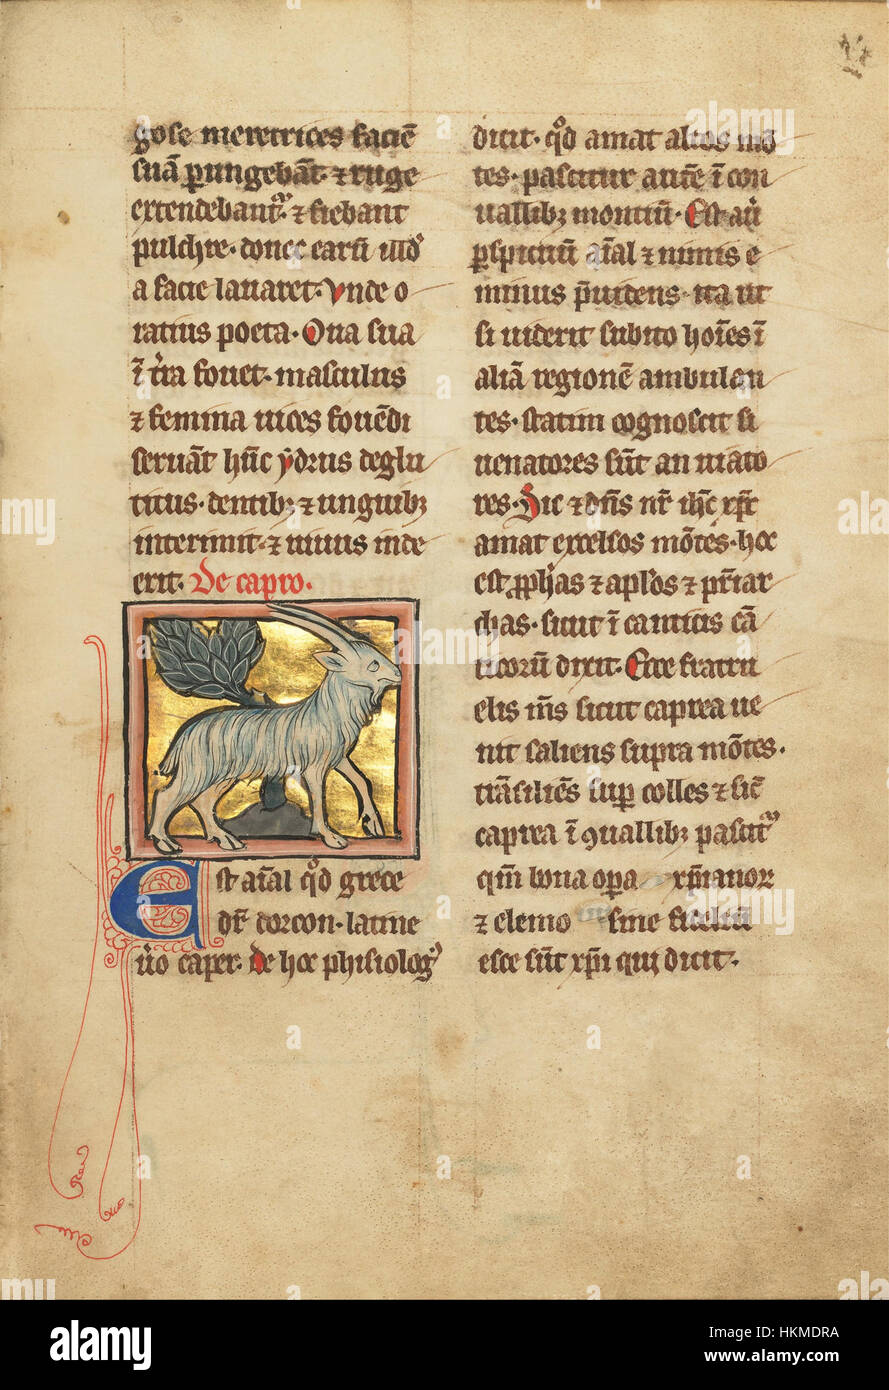 gose meretrices faciē
suā ꝑungebāt ⁊ ruge
extendebant᷑ ⁊ fiebant
pulchre. donec earū uld᷒
a facie lauaret. Vnde o
ratius poeta. Oua sua
ī t̄ra fouet. masculus
⁊ femina uices fouēdi
seruāt hūc ydrus deglu
titus. dentibꝫ ⁊ unguibꝫ
interimit ⁊ uiuus inde
erit. De capro.
Est aīal qd̄ grece
dr̄ dorcon. latine
ūo caper. de hoc phisiolog᷒
dicit. qd̄ amat altos mō
tes. pascitur autē ī con
uallibꝫ montiū. Est aū
ꝑspicuū aīal ⁊ nimis e
minus p̄uidens. ita ut
si uiderit subito hoīes ī
aliā regionē ambulan
tes. statim cognoscit si
uenatores sūt an uiato
res. Sic ⁊ dn̄s nr̄ ihc̄ xp̄c
amat excelsos mōtes. hoc
est ꝓph̄as ⁊ apl̄os ⁊ pr̄iar
chas. sicut ī canticis cā
ticorū dixit. Ecce fratru
elis ms̄ sicut caprea ue
nit saliens supra mōtes.
trāsiliēs sup̄ colles ⁊ sic̄
caprea ī ꝯuallibꝫ pascit᷑
qm̄ bona opa xp̄ianor
⁊ elemo sine fideliū
esce sūt xp̄i qui dicit.
alamy
Image ID: HKMDRA
www.alamy.com